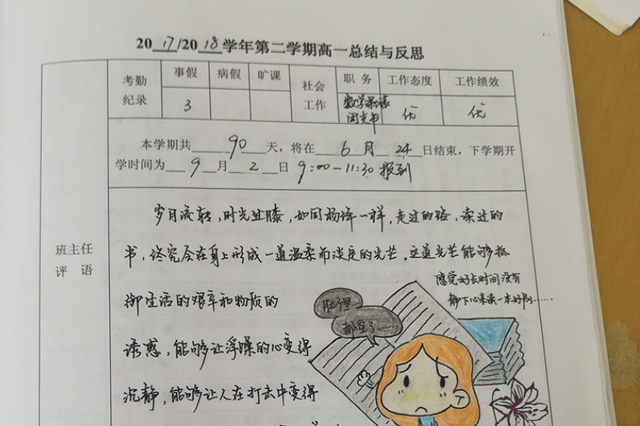 2017/2018学年第二学期高一总结与反思
考勤纪录 事假 病假 旷课 社会工作 职务 工作态度 工作绩效
3 数学课代 团支书 优 优
本学期共 90 天,将在 6 月 24 日结束,下学期开
学时间为 9 月 2 日 9:00-11:30 报到
班主任
评语
岁月流转,时光
如同杨绛一样,走过的路,读过的
书,终究会在身上形成一道温柔而淡定的光芒。这道光芒能够抵
御生活的艰辛和物质的
诱惑,能够让浮躁的心变得
沉静,能够让人在打击中变得
感觉好长时间没有
静下心来读一本好书……
肚子里
都空了……